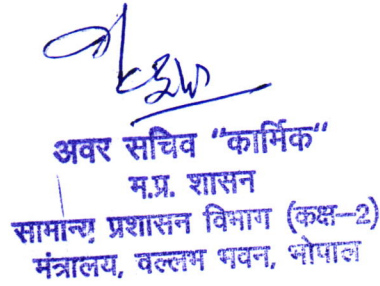 अवर सचिव "कार्मिक"
म.प्र. शासन
सामान्य प्रशासन विभाग (कक्ष–2)
मंत्रालय, वल्लभ भवन, भोपाल